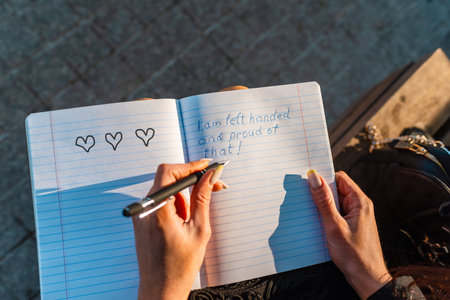 I am left handed
and proud of
that!